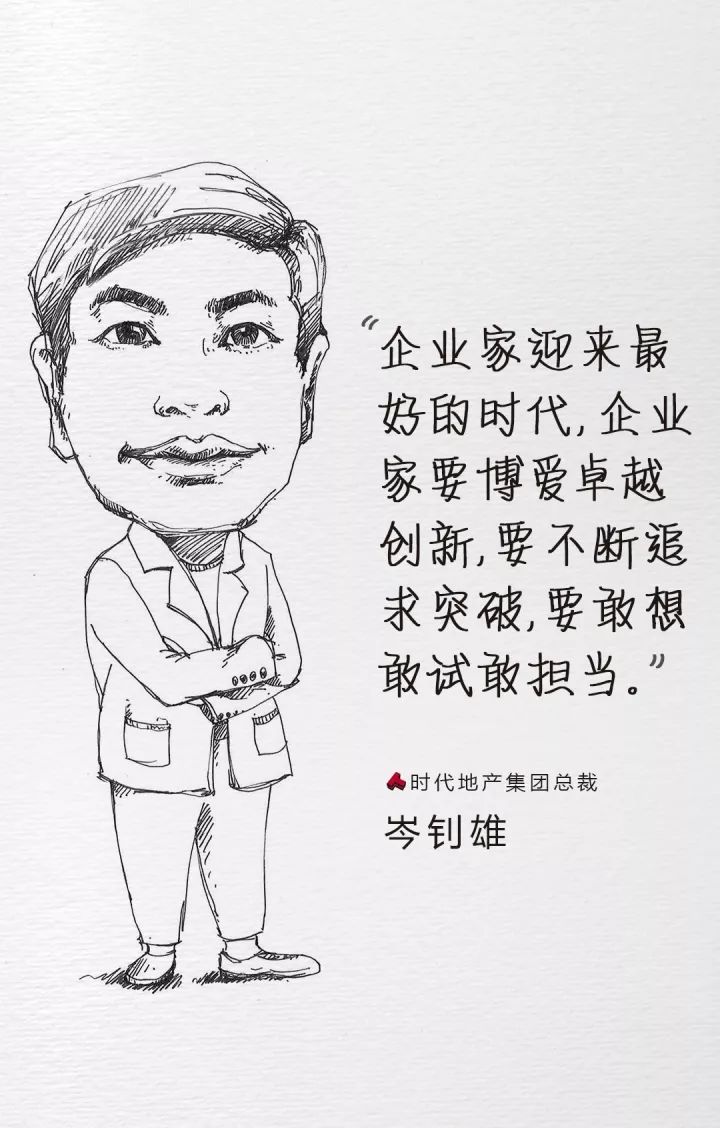 “企业家迎来最
好的时代,企业
家要博爱卓越
创新,要不断追
求突破,要敢想
敢试敢担当。”
时代地产集团总裁
岑钊雄